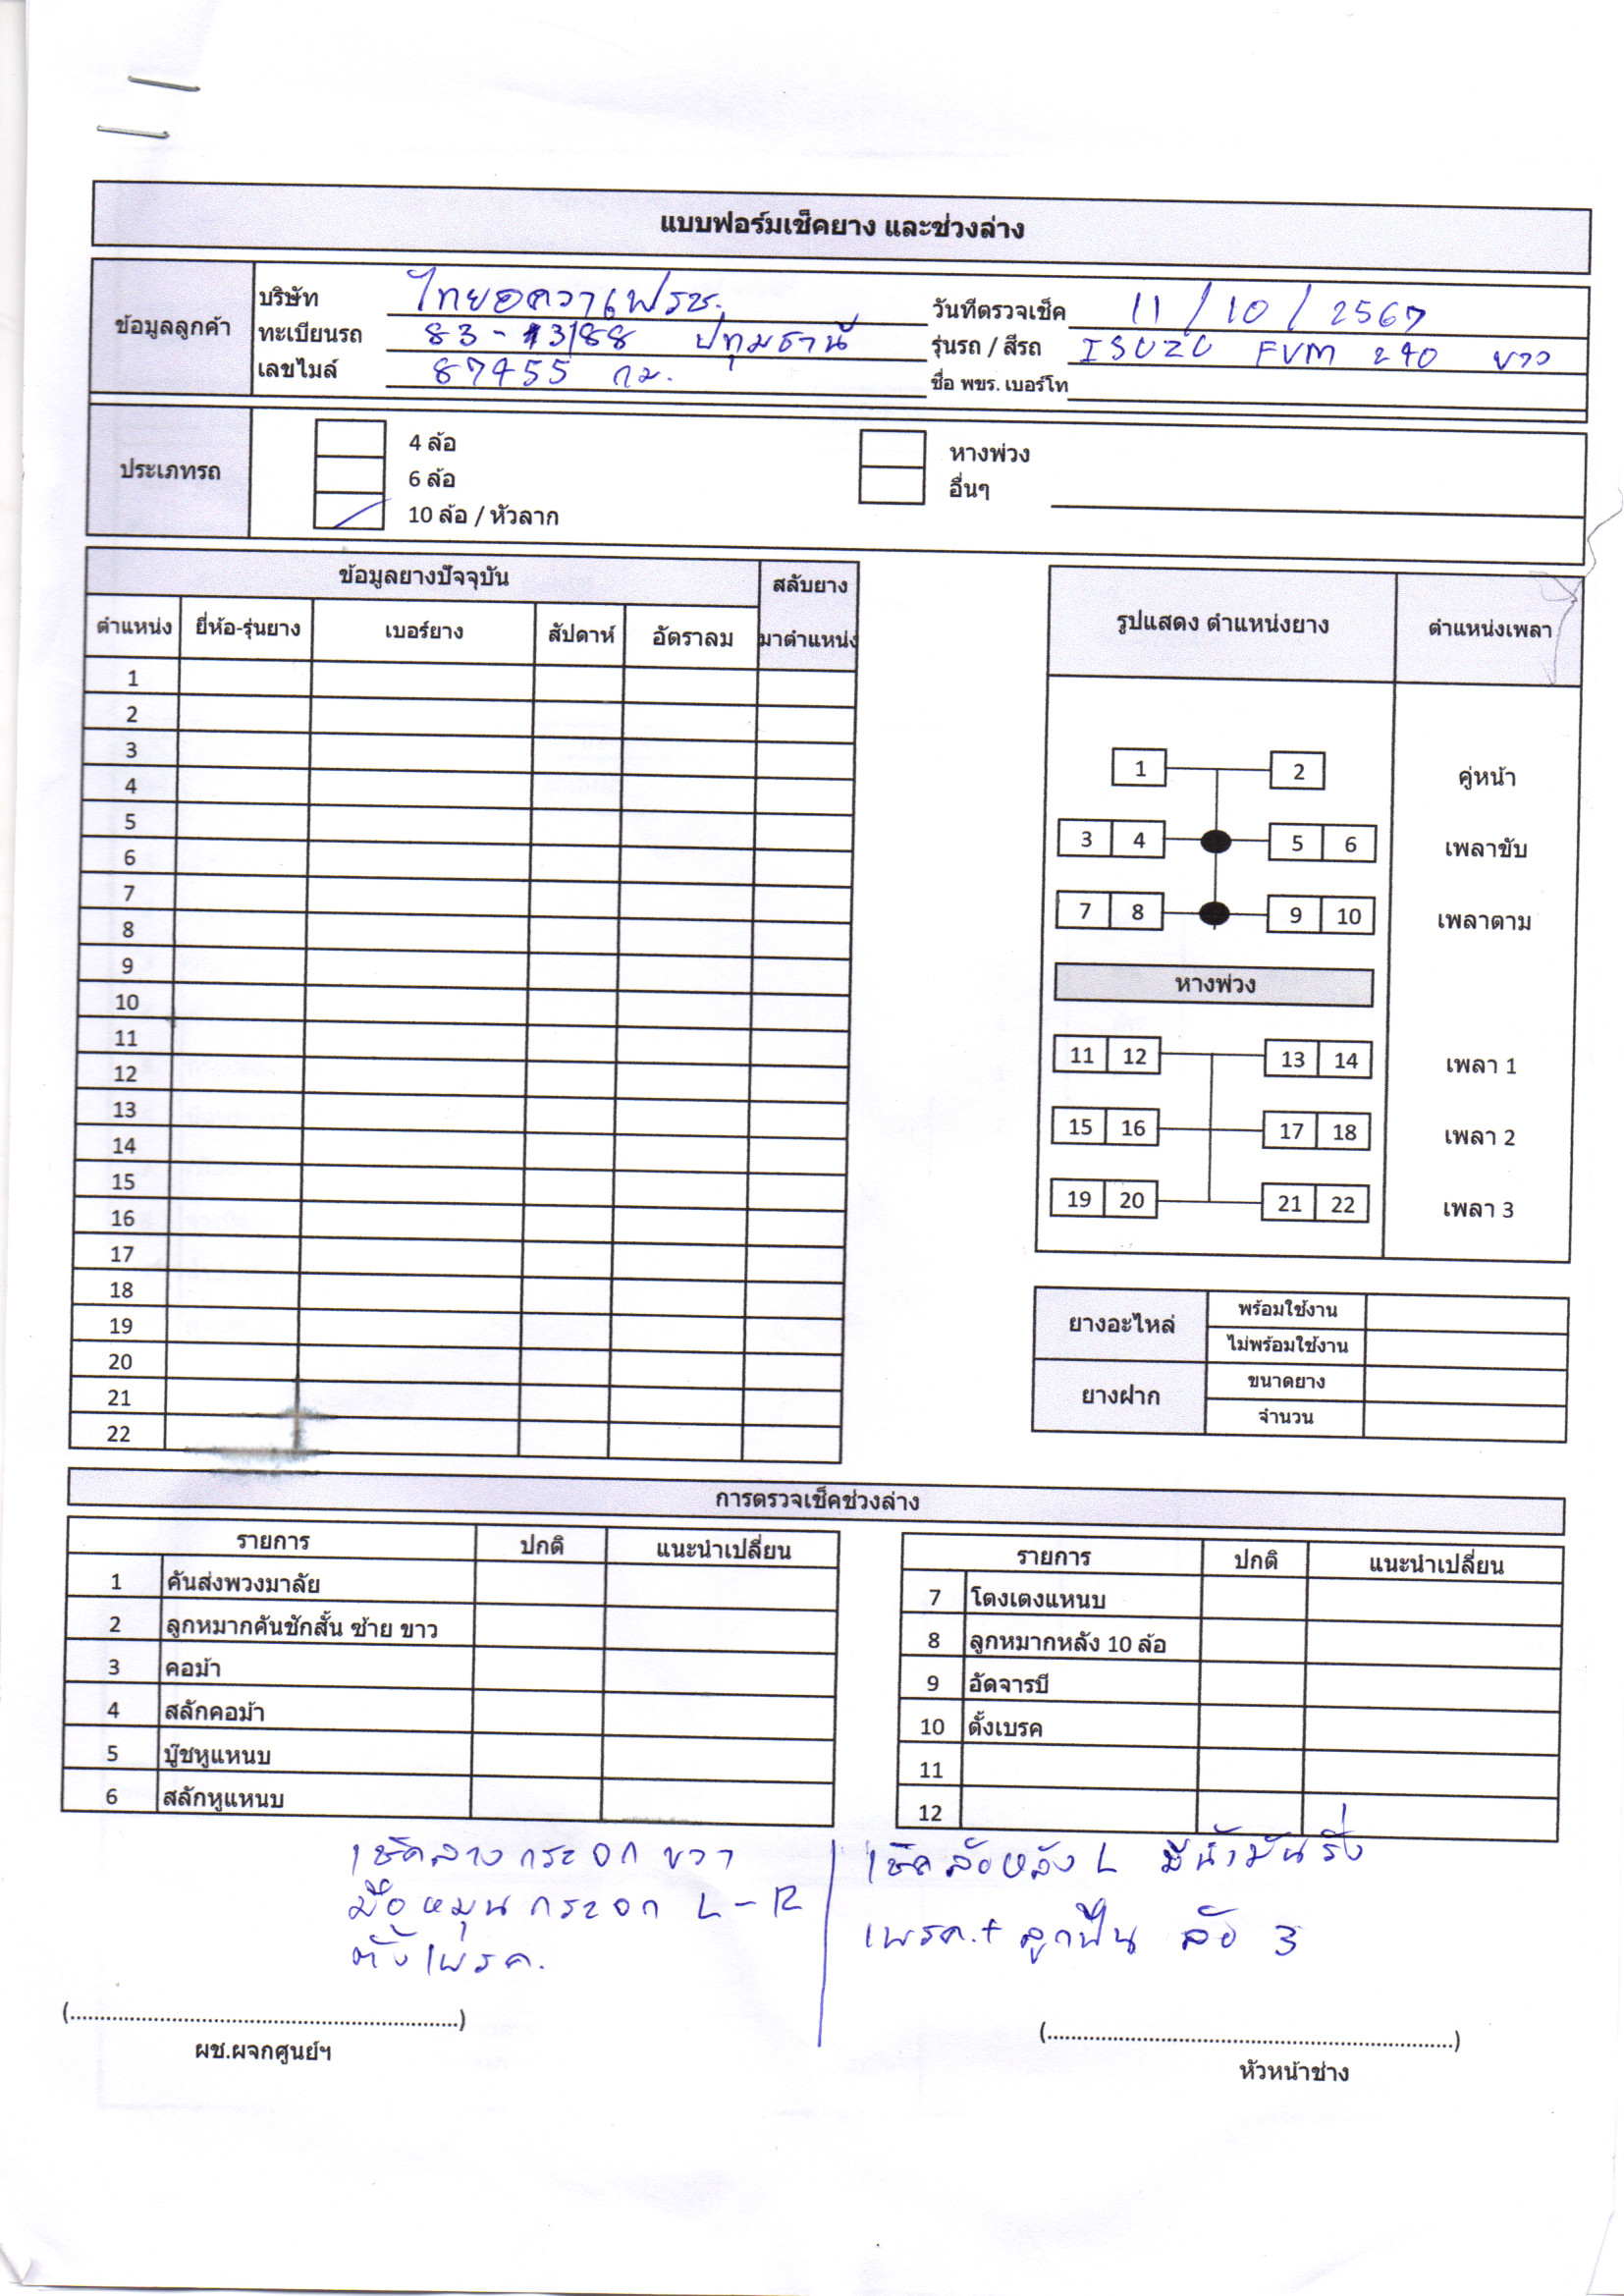 แบบฟอร์มเช็คยาง และช่วงล่าง
ข้อมูลลูกค้า
บริษัท ไทยอควาเฟรช. วันที่ตรวจเช็ค 11 / 10 / 2567
ทะเบียนรถ 83 - 3188 ปทุมธานี รุ่นรถ / สีรถ ISUZU FVM 240 ขาว
เลขไมล์ 87455 กม. ชื่อ พขร. เบอร์โท
ประเภทรถ
4 ล้อ หางพ่วง
6 ล้อ อื่นๆ
10 ล้อ / หัวลาก
ข้อมูลยางปัจจุบัน สลับยาง
ตำแหน่ง ยี่ห้อ-รุ่นยาง เบอร์ยาง สัปดาห์ อัตราลม มาตำแหน่ง
1
2
3
4
5
6
7
8
9
10
11
12
13
14
15
16
17
18
19
20
21
22
รูปแสดง ตำแหน่งยาง ตำแหน่งเพลา
1 2 คู่หน้า
3 4 5 6 เพลาขับ
7 8 9 10 เพลาตาม
หางพ่วง
11 12 13 14 เพลา 1
15 16 17 18 เพลา 2
19 20 21 22 เพลา 3
ยางอะไหล่ พร้อมใช้งาน
ไม่พร้อมใช้งาน
ยางฝาก ขนาดยาง
จำนวน
การตรวจเช็คช่วงล่าง
รายการ ปกติ แนะนำเปลี่ยน
1 คันส่งพวงมาลัย
2 ลูกหมากคันชักสั้น ซ้าย ขาว
3 คอม้า
4 สลักคอม้า
5 บู๊ชหูแหนบ
6 สลักหูแหนบ
รายการ ปกติ แนะนำเปลี่ยน
7 โตงเตงแหนบ
8 ลูกหมากหลัง 10 ล้อ
9 อัดจารบี
10 ตั้งเบรค
11
12
เช็คลางกระจกขวา
มือหมุนกระจก L-R
ตั้งเบรค.
เช็คล้อหลัง L มีน้ำมันรั่ว
เบรค.+ ลูกปืน ล้อ 3
(..................................................................)
ผช.ผจกศูนย์ฯ
(......................................................................)
หัวหน้าช่าง